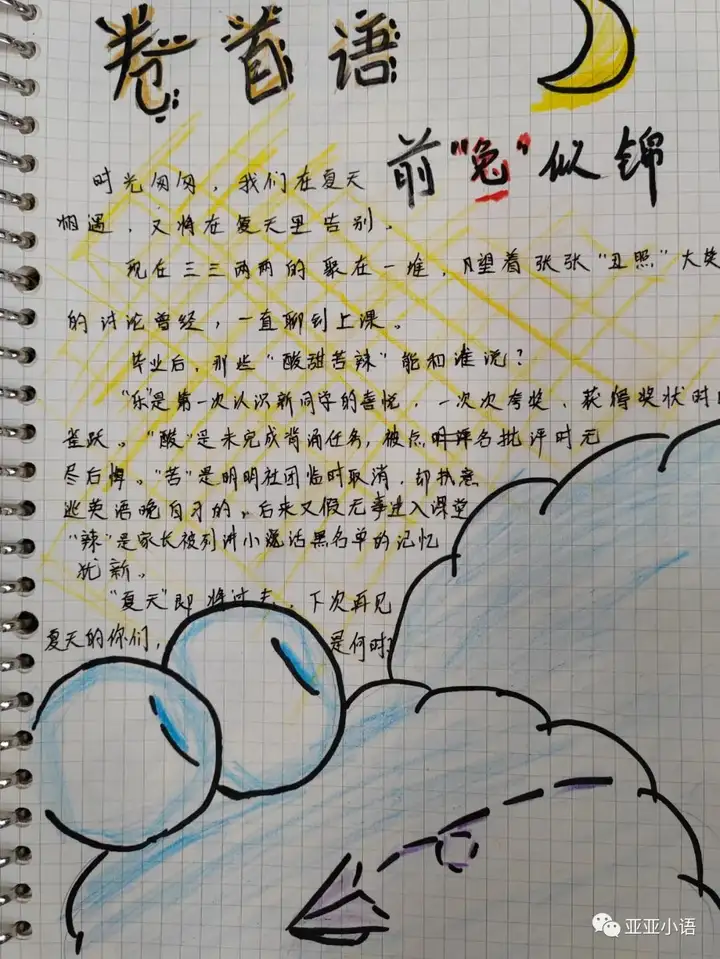 卷首语
前“兔”似锦
时光匆匆，我们在夏天
相遇，又将在夏天里告别。
现在三三两两的聚在一堆，望着张张“丑照”大笑
的讨论曾经，一直聊到上课。
毕业后，那些“酸甜苦辣”能和谁说？
“乐”是第一次认识新同学的喜悦，一次次考奖、获得奖状时的
雀跃。“酸”是未完成背诵任务，被点名批评时无
尽后悔。“苦”是明明社团临时取消，却执意
逃英语晚自习的，后来又假无事进入课堂
“辣”是家长被列讲小话黑名单的记忆
犹新。
“夏天”即将过去，下次再见
夏天的你们，是何时？
亚亚小语